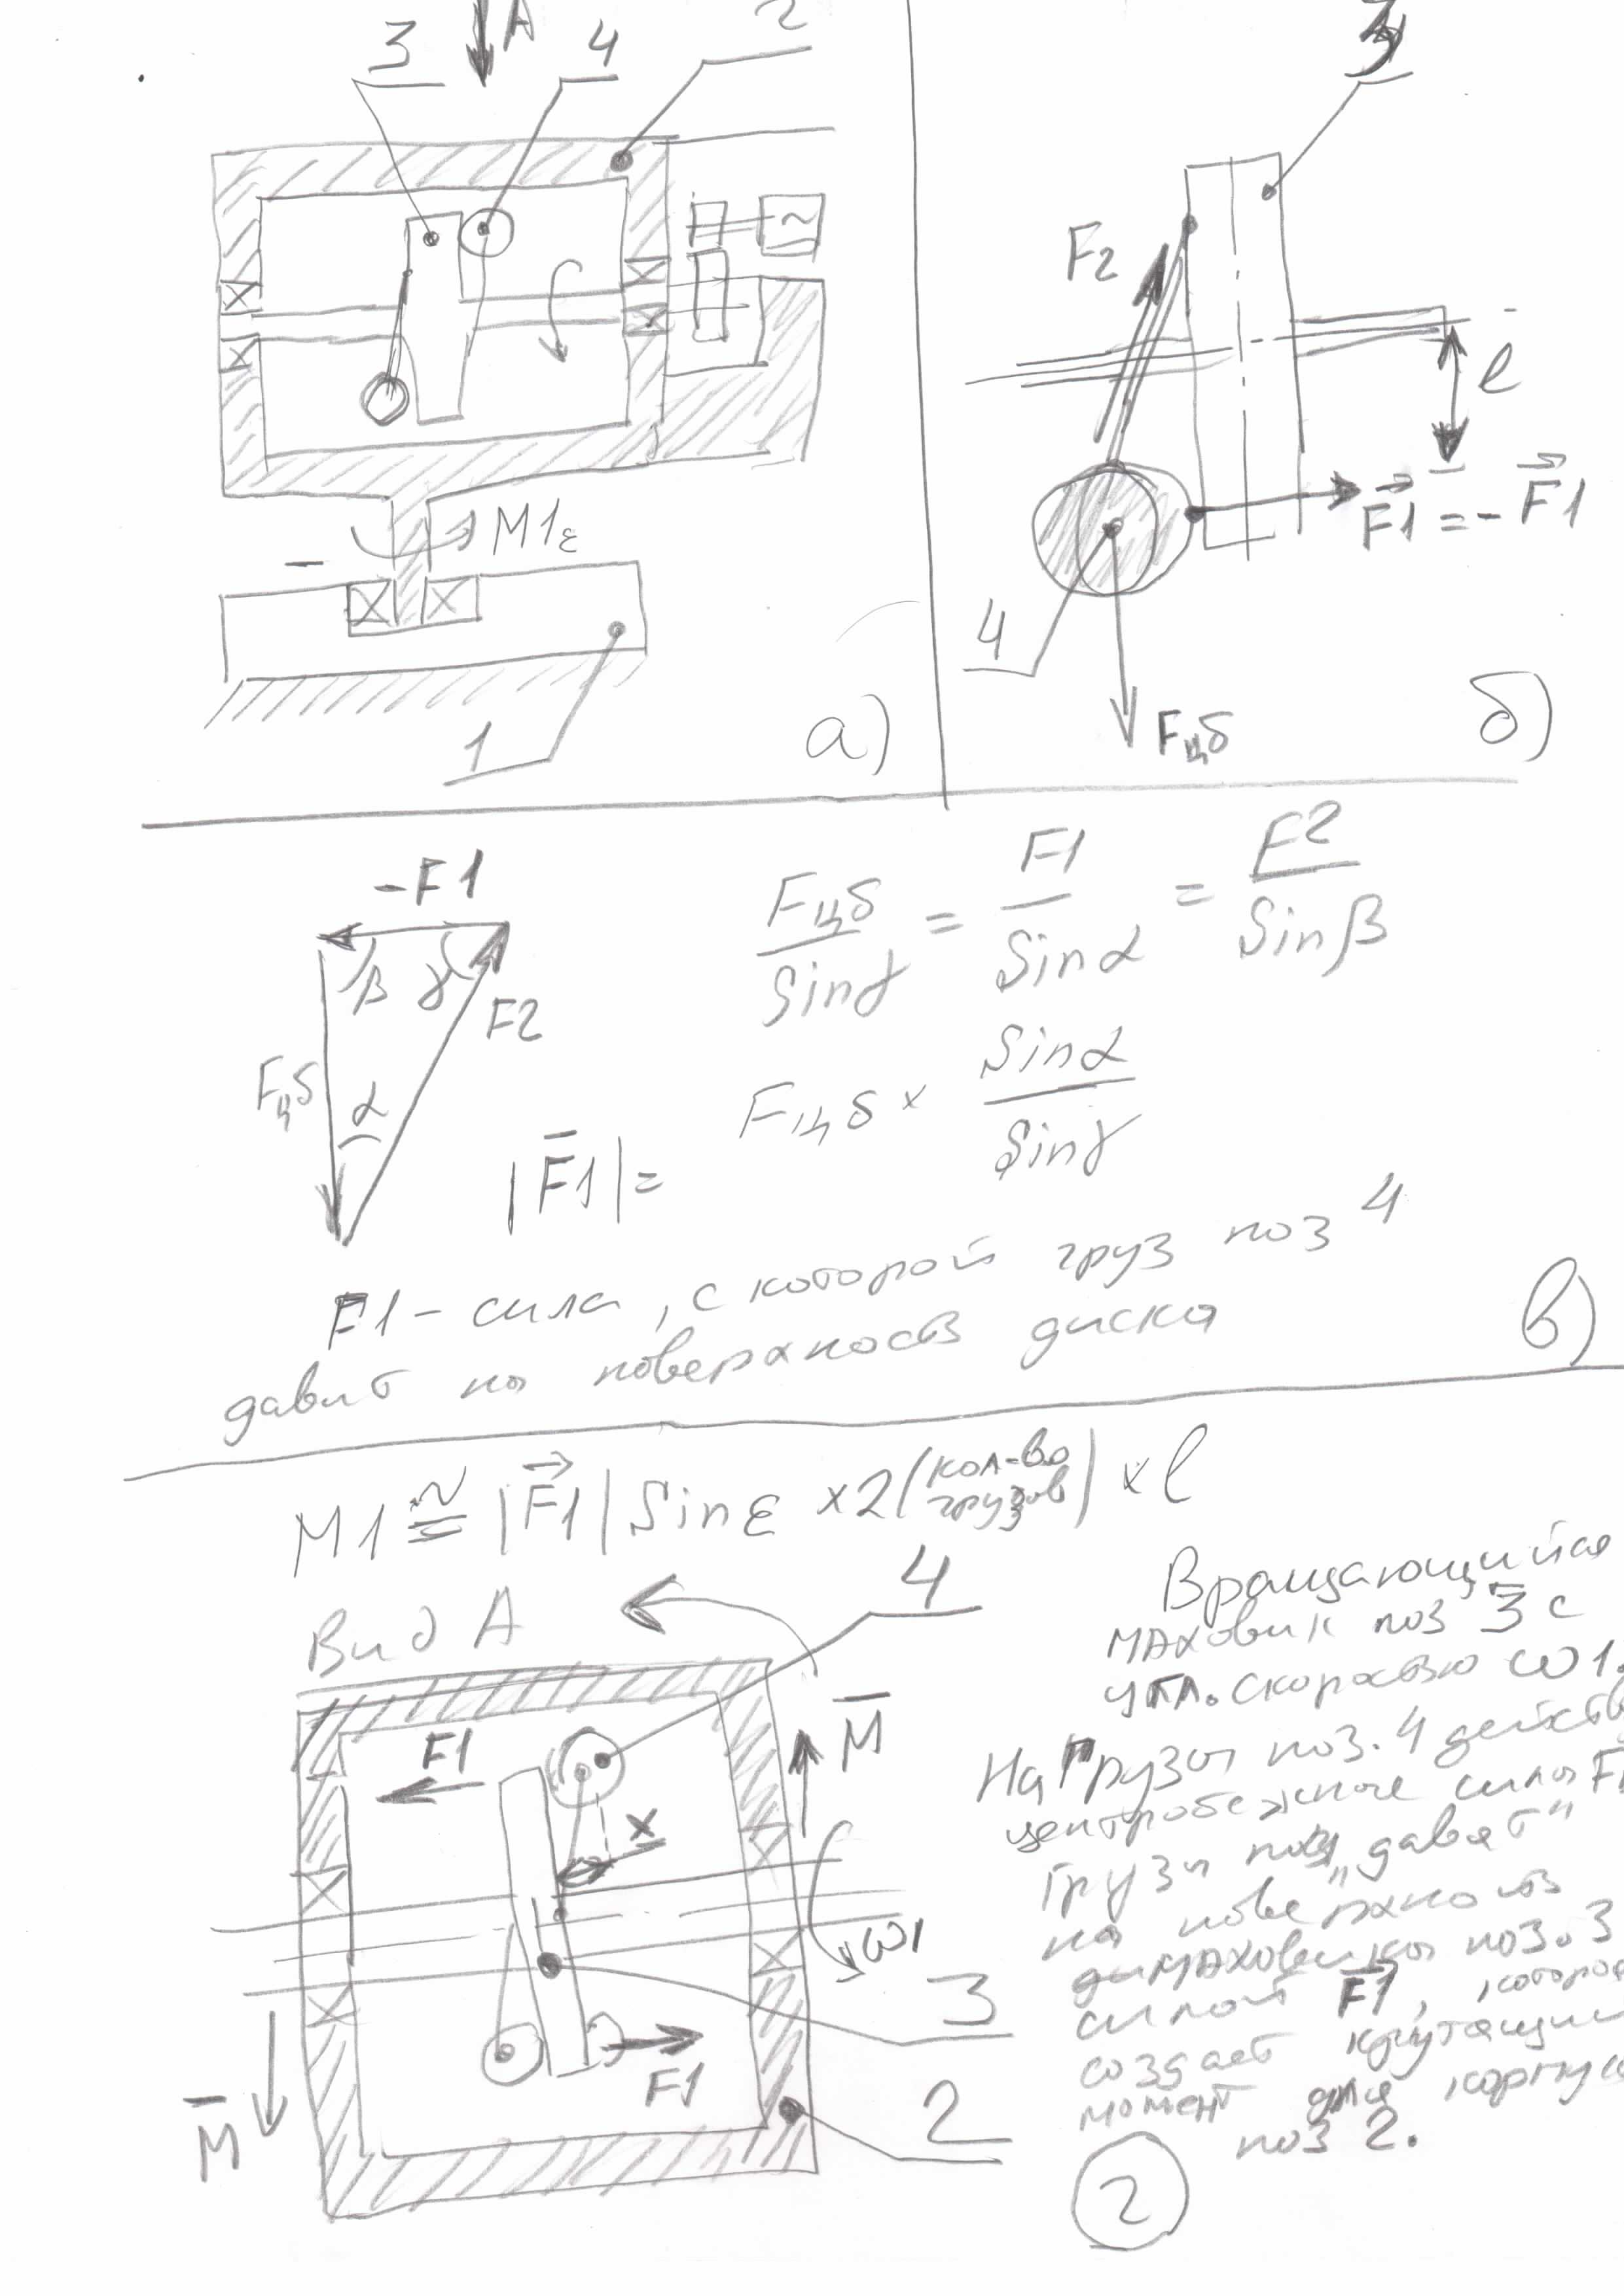 3
A
4
2
~
M1ε
1
а)
3
F2
l
F1 = - F1
4
Fцб
б)
-F1
β γ
F2
Fцб
α
Fцб / Sinγ = F1 / Sinα = F2 / Sinβ
|F1| = Fцб × Sinα / Sinγ
F1 - сила, с которой груз поз 4
давит на поверхность диска
в)
M1 ≅ |F1| Sinε ×2 (кол-во грузов) × l
Вид А
4
F1
M
x
ω1
3
F1
M
2
Вращающийся
маховик поз 3 с
угл. скоростью ω1.
На грузы поз. 4 действ
центробежные силы F
Грузы поз4 "давят"
на поверхность
маховика поз. 3
силой F1, которая
создает крутящий
момент для корпуса
поз 2.
2